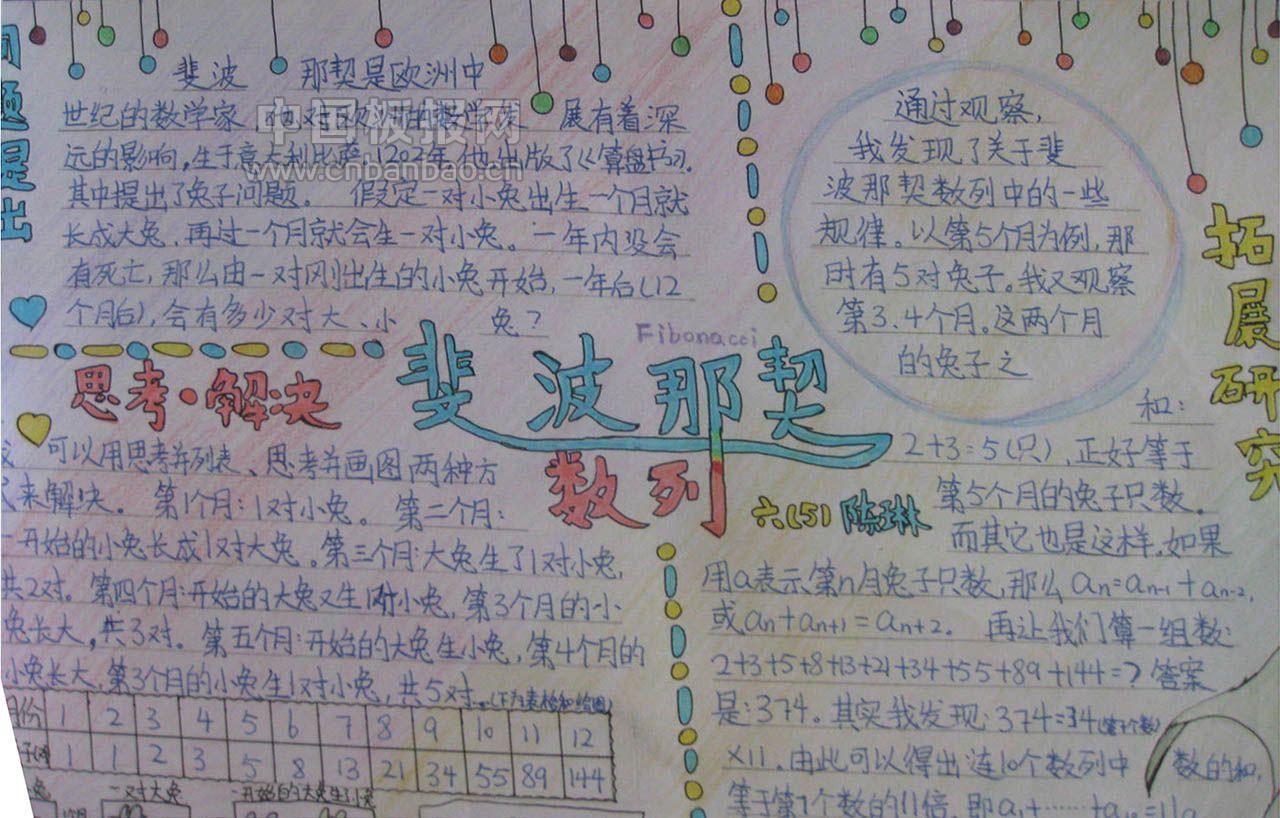 问题提出
斐波 那契是欧洲中
世纪的数学家,他对欧洲的数学 展有着深
远的影响,生于意大利比萨,1202年,他出版了《算盘书》.
其中提出了兔子问题。 假定一对小兔出生一个月就
长成大兔,再过一个月就会生一对小兔。一年内没会
有死亡,那么由一对刚出生的小兔开始,一年后(12
个月后),会有多少对大、小 兔?
中国板报网
www.cnbanbao.cn
思考·解决
可以用思考并列表、思考并画图两种方
式来解决。 第1个月:1对小兔。 第二个月:
一开始的小兔长成1对大兔。第三个月:大兔生了1对小兔,
共2对。第四个月:开始的大兔又生1对小兔,第3个月的小
兔长大,共3对。第五个月:开始的大兔生小兔,第4个月的
小兔长大,第3个月的小兔生1对小兔,共5对.(下为表格和绘图)
月份 1 2 3 4 5 6 7 8 9 10 11 12
1 1 2 3 5 8 13 21 34 55 89 144
一对大兔 一开始的大兔生小兔
Fibonacci
斐波那契
数列
六(5) 陈琳
拓展研究
通过观察,
我发现了关于斐
波那契数列中的一些
规律。以第5个月为例,那
时有5对兔子。我又观察
第3.4个月。这两个月
的兔子之
和:
2+3=5(只),正好等于
第5个月的兔子只数。
而其它也是这样,如果
用a表示第n月兔子只数,那么an=an-1+an-2,
或an+an+1=an+2. 再让我们算一组数:
2+3+5+8+13+21+34+55+89+144=?答案
是:374。其实我发现:374=34(第7个数)
×11.由此可以得出连10个数列中 数的和,
等于第7个数的11倍.即a1+……+a10=11a